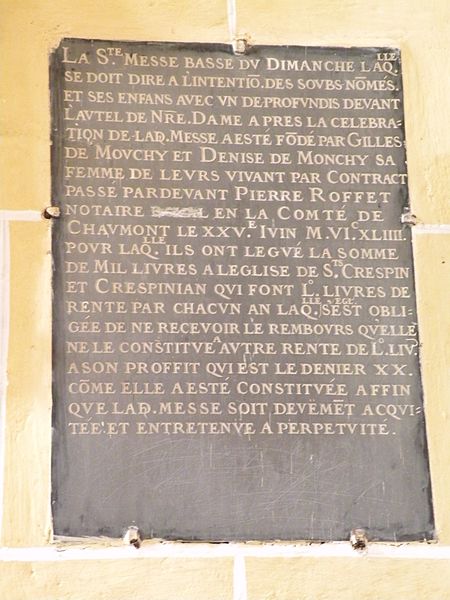 LA S.TE MESSE BASSE DV DIMANCHE LAQ.LLE
SE DOIT DIRE A L'INTENTIŌ.DES SOVBS NŌMÉS.
ET SES ENFANS AVEC VN DE PROFVNDIS DEVANT
L'AVTEL DE NRE.DAME APRES LA CELEBRA-
TION DE-LAD.MESSE A ESTÉ FŌDÉ PAR GILLES-
DE MOVCHY ET DENISE DE MONCHY SA
FEMME DE LEVRS VIVANT PAR CONTRACT
PASSÉ PARDEVANT PIERRE ROFFET
NOTAIRE EN LA COMTÉ DE
CHAVMONT LE XXV.E IVIN M.VI.C XLIIII.
POVR LAQ.LLE ILS ONT LEGVÉ LA SOMME
DE MIL LIVRES A LEGLISE DE S.TS CRESPIN
ET CRESPINIAN QVI FONT L.O LIVRES DE
RENTE PAR CHACVN AN LAQ.LLE EGL.E SEST OBLI-
GÉE DE NE RECEVOIR LE REMBOVRS QV'ELLE
NE LE CONSTITVE A AVTRE RENTE DE L.O LIV.
A SON PROFFIT QVI EST LE DENIER XX.
CŌME ELLE A ESTÉ CONSTITVÉE AFFIN
QVE LAD.MESSE SOIT DEVËMĒT ACQVI-
TEÉ.ET ENTRETENVE A PERPETVITÉ.